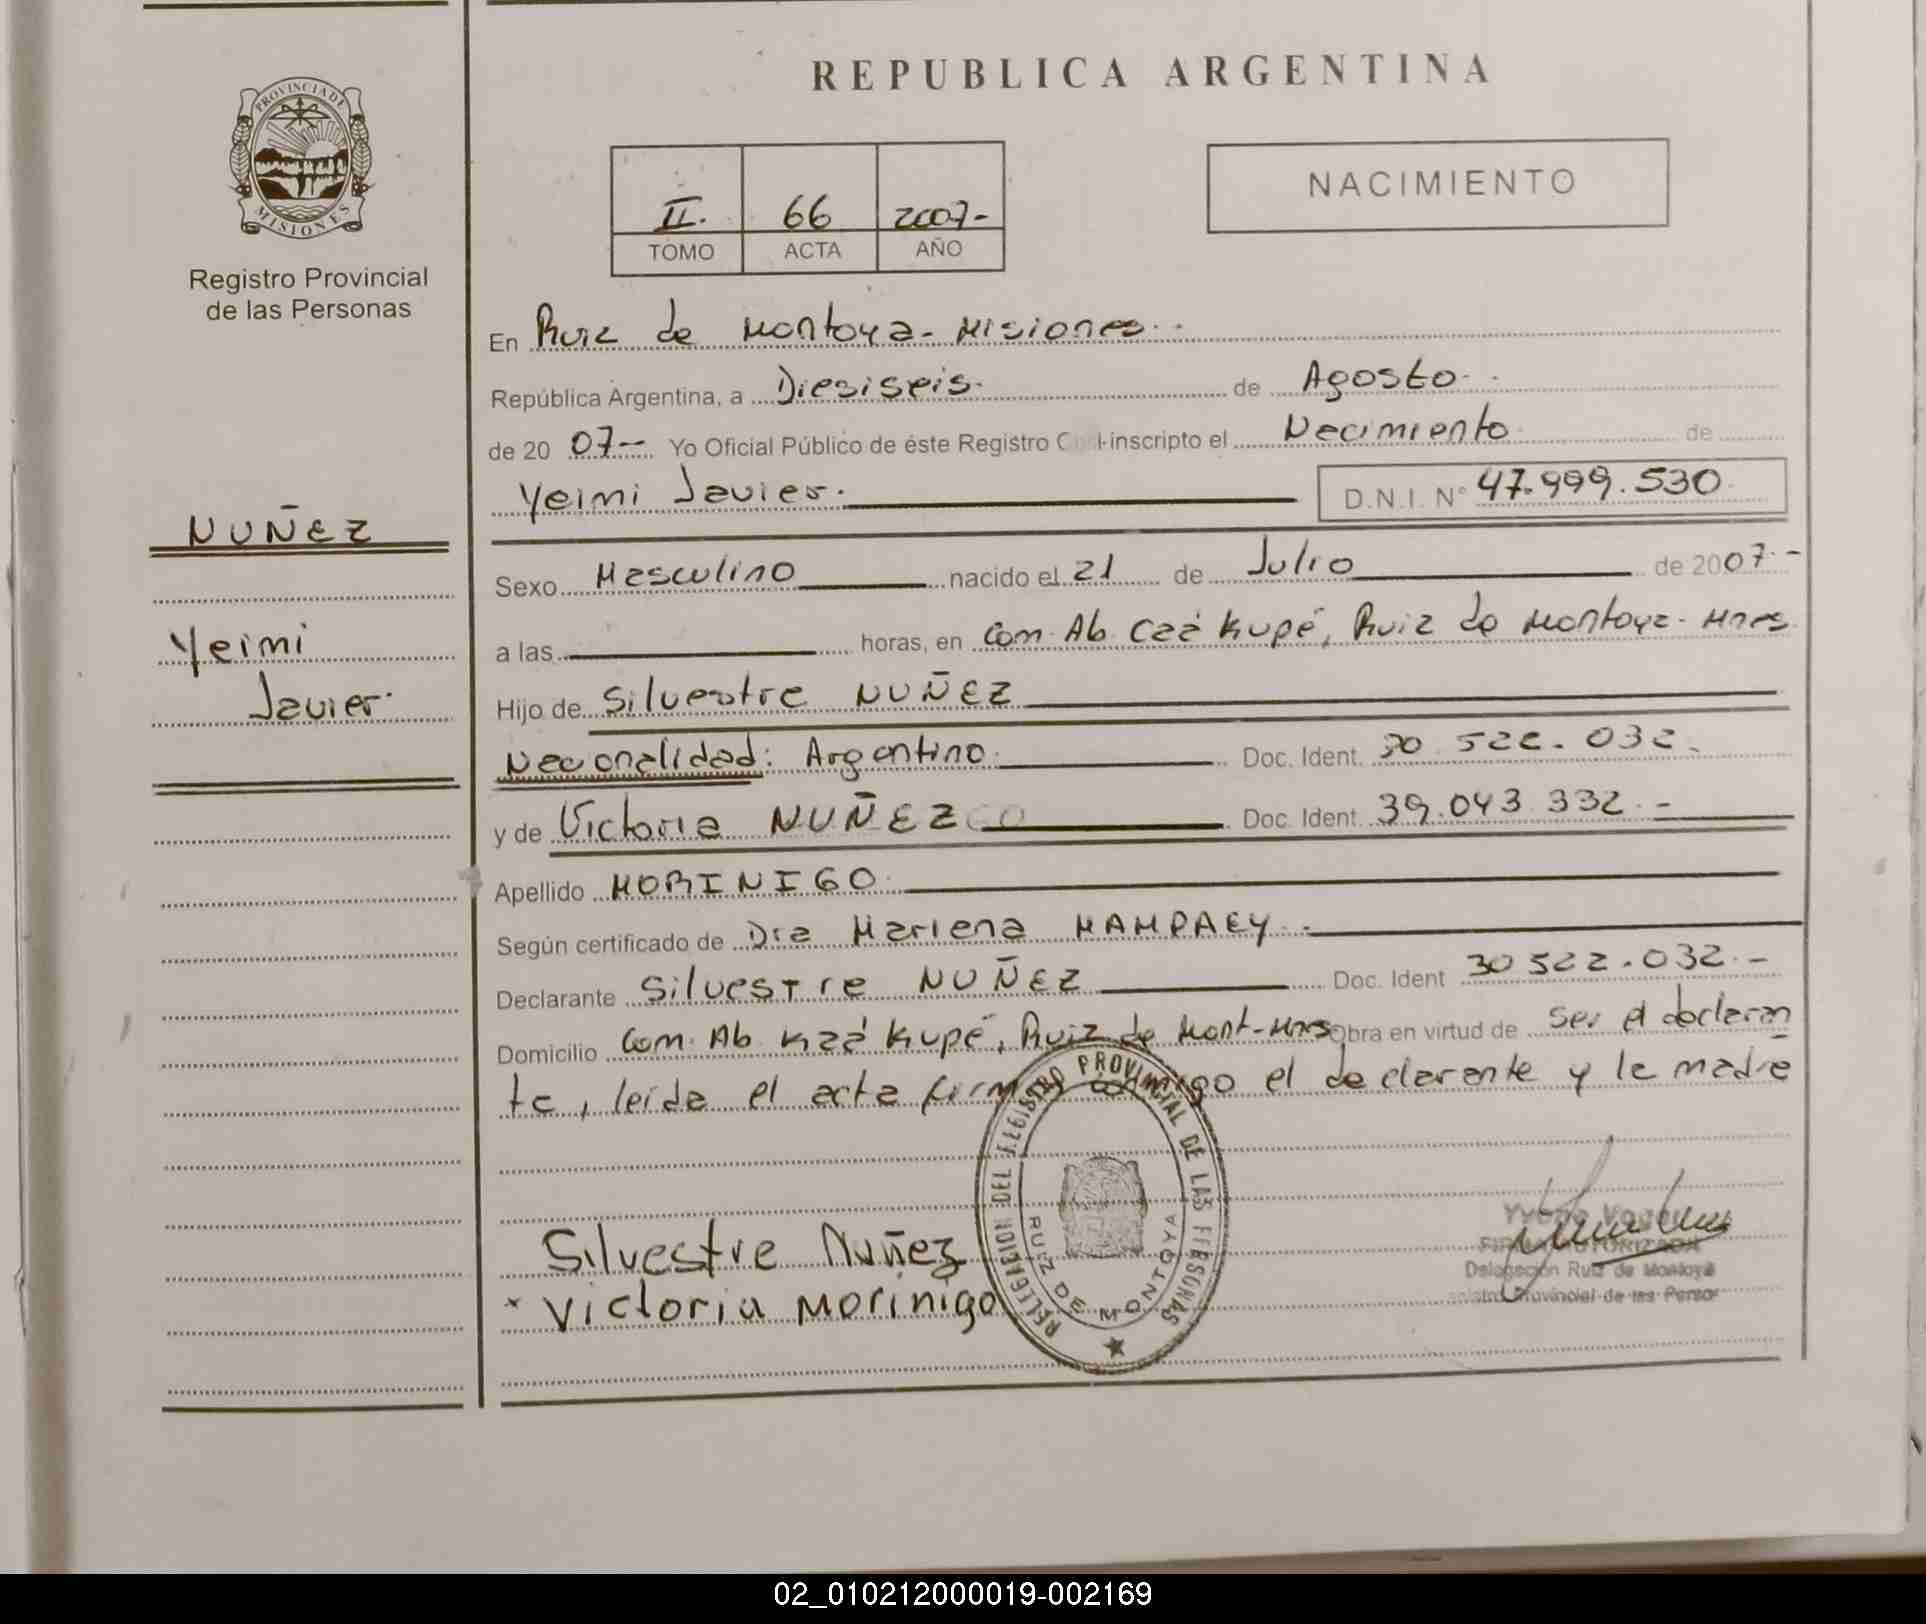 REPUBLICA ARGENTINA
PROVINCIA DE
MISIONES
Registro Provincial
de las Personas
II. 66 2007-
TOMO ACTA AÑO
NACIMIENTO
En Ruiz de Montoya - Misiones
República Argentina, a Diesiseis de Agosto
de 20 07-- Yo Oficial Público de éste Registro inscripto el Nacimiento de
Yeimi Javier. D.N.I. Nº 47.999.530
NUÑEZ
Yeimi
Javier
Sexo Masculino nacido el 21 de Julio de 2007.-
a las horas, en Com. Ab. Caá Kupé, Ruiz de Montoya - Mnes
Hijo de Silvestre NUÑEZ
Nacionalidad: Argentino. Doc. Ident. 30 522.032.
y de Victoria NUÑEZ Doc. Ident. 39.043 332.-
Apellido MORINIGO
Según certificado de Dra Marlena MAMPAEY.
Declarante Silvestre NUÑEZ Doc. Ident 30 522.032.-
Domicilio Com. Ab. Kaá Kupé, Ruiz de Mont-Mns Obra en virtud de ser el declaran
te, leída el acta firman conmigo el declarante y la madre
Silvestre Nuñez
x Victoria Morinigo
DEL REGISTRO PROVINCIAL DE LAS PERSONAS
RUIZ DE MONTOYA
FIRMA AUTORIZADA
Delegación Ruiz de Montoya
Provincial de las Perso
02_010212000019-002169